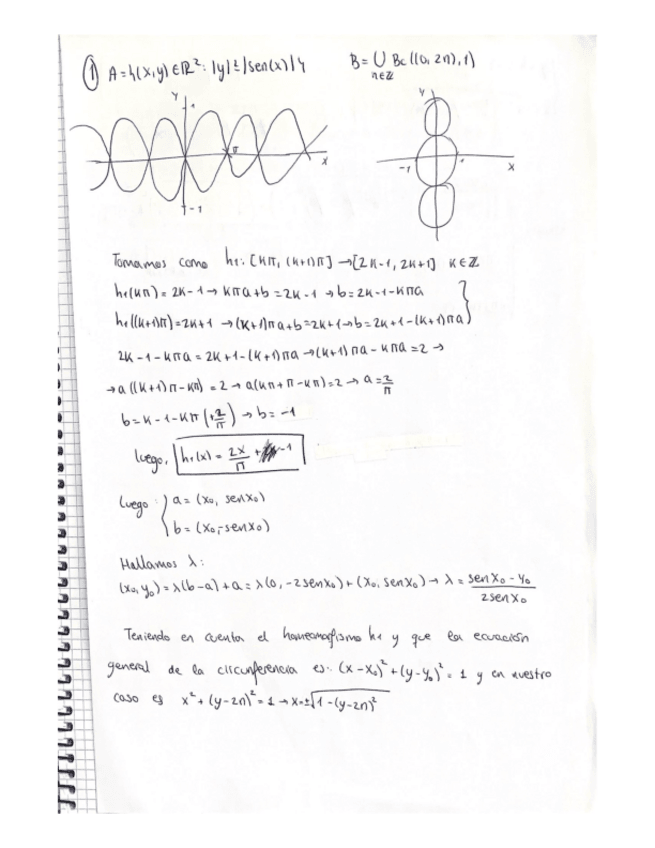 ① A = {(x,y) ∈ ℝ²: |y| ≤ |sen(x)|} B = ⋃ Bc((0, 2n), 1)
n∈ℤ
Y
1
π
X
-1
Y
-1
1
X
Tomamos como h₁: [kπ, (k+1)π] → [2k-1, 2k+1] k∈ℤ
h₁(kπ) = 2k-1 → kπa+b = 2k-1 → b = 2k-1-kπa
h₁((k+1)π) = 2k+1 → (k+1)πa+b = 2k+1 → b = 2k+1-(k+1)πa }
2k-1-kπa = 2k+1-(k+1)πa → (k+1)πa - kπa = 2 →
→ a((k+1)π-kπ) = 2 → a(kπ+π-kπ) = 2 → a = 2/π
b = k-1-kπ(+2/π) → b = -1
luego, h₁(x) = 2x/π + -1
luego { a = (x₀, senx₀)
b = (x₀, -senx₀)
Hallamos λ:
(x₀, y₀) = λ(b-a)+a = λ(0, -2senx₀)+(x₀, senx₀) → λ = (senx₀ - y₀)/(2senx₀)
Teniendo en cuenta el homeomorfismo h₁ y que la ecuación
general de la circunferencia es: (x-x₀)²+(y-y₀)² = 1 y en nuestro
caso es x²+(y-2n)² = 1 → x = ±√(1-(y-2n)²)